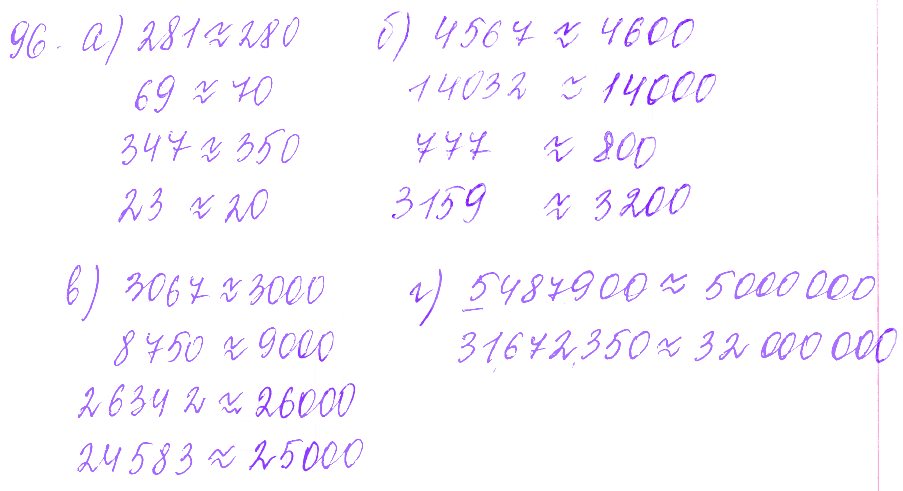 96. а) 281 ≈ 280
69 ≈ 70
347 ≈ 350
23 ≈ 20
б) 4567 ≈ 4600
14032 ≈ 14000
777 ≈ 800
3159 ≈ 3200
в) 3067 ≈ 3000
8750 ≈ 9000
26342 ≈ 26000
24583 ≈ 25000
г) 5487900 ≈ 5000 000
31,672,350 ≈ 32 000 000